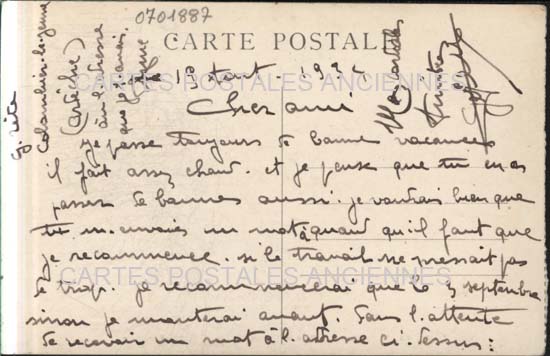 0701887
CARTE POSTALE
CARTES POSTALES ANCIENNES
Cher ami
je passe toujours de bonne vacances
il fait assez chaud. et je pense que tu en as
passer de bonnes aussi. je voudrais bien que
tu m'envoies un mot à quand qu'il faut que
je recommence. si le travail ne pressait pas
de trop. je recommencerai que le 3 septembre
CARTES POSTALES ANCIENNES
sinon je monterai avant. Dans l'attente
de recevoir un mot à l'adresse ci-dessus:
Colombier-le-jeune
(Ardèche)